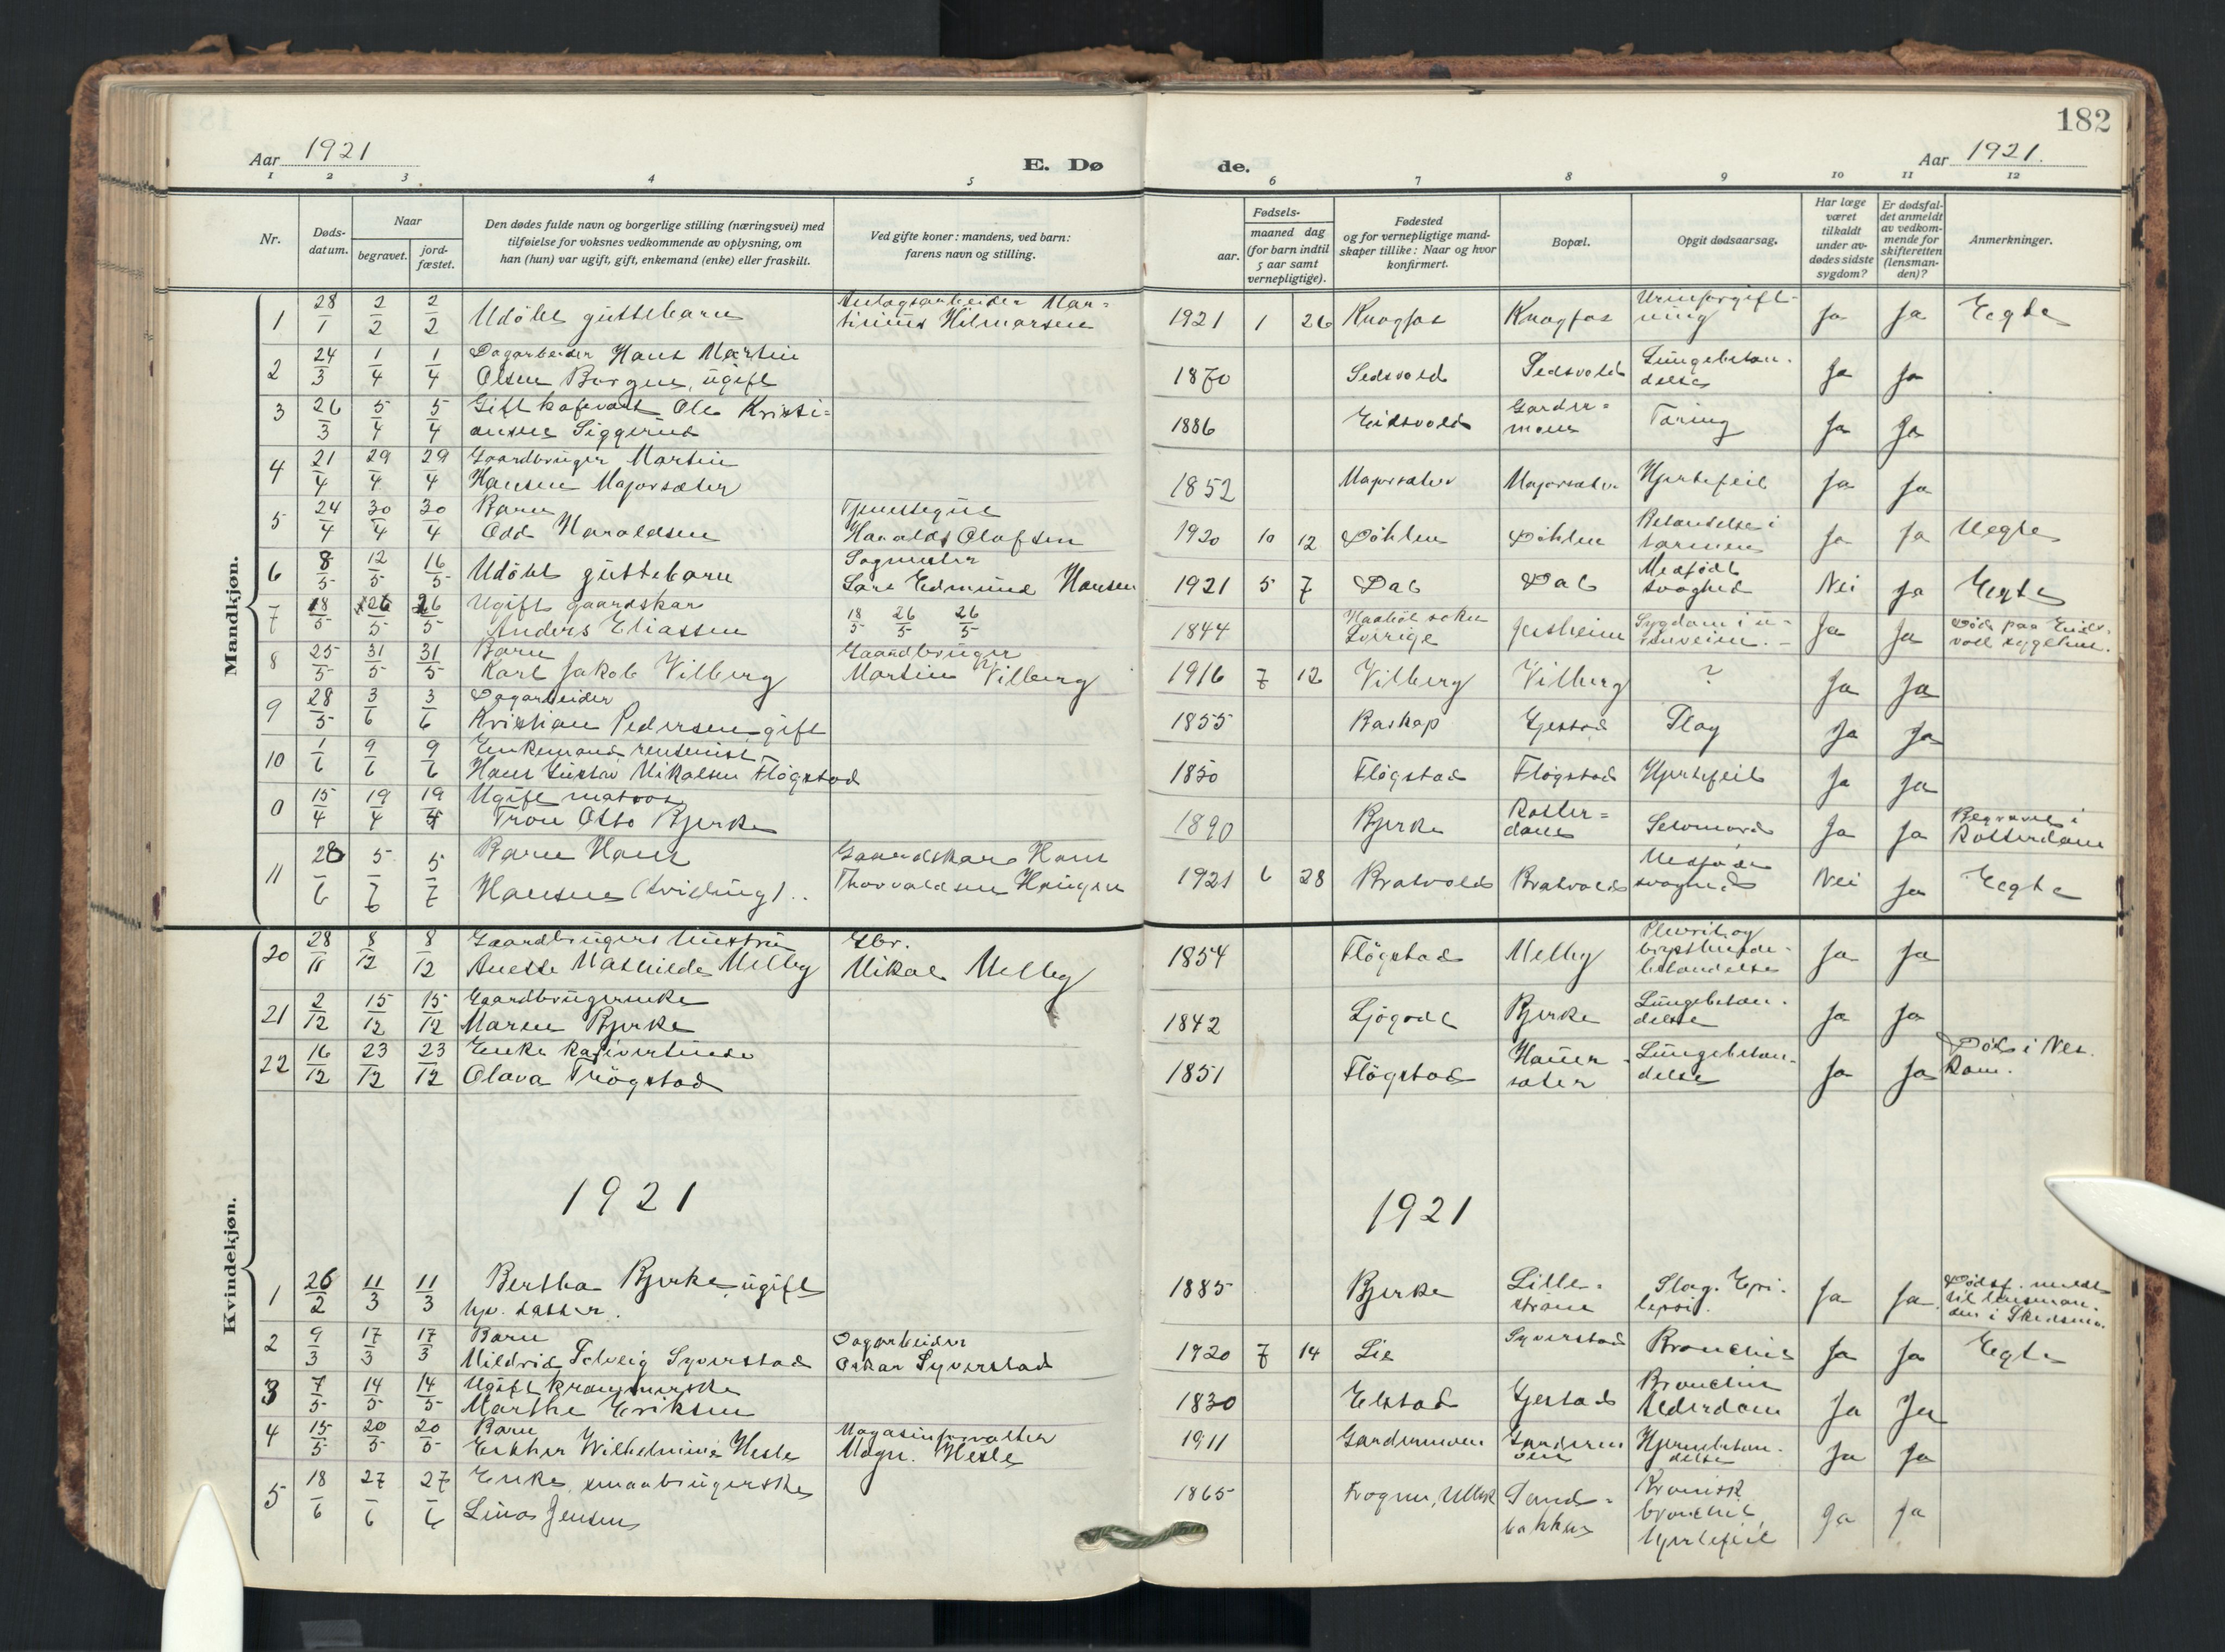 182
Aar 1921
E. Dø
de.
Aar 1921.
1 2 3 4 5 6 7 8 9 10 11 12
Nr.
Døds-
datum.
Naar
begravet.
jord-
fæstet.
Den dødes fulde navn og borgerlige stilling (næringsvei) med
tilføielse for voksnes vedkommende av oplysning, om
han (hun) var ugift, gift, enkemand (enke) eller fraskilt.
Ved gifte koner: mandens, ved barn:
farens navn og stilling.
Fødsels-
aar.
maaned dag
(for barn indtil
5 aar samt
vernepligtige).
Fødested
og for vernepligtige mand-
skaper tillike: Naar og hvor
konfirmert.
Bopæl.
Opgit dødsaarsag.
Har læge
været
tilkaldt
under av-
dødes sidste
sygdom?
Er dødsfal-
det anmeldt
av vedkom-
mende for
skifteretten
(lensman-
den)?
Anmerkninger.
Mandkjøn.
1 28/1 2/2 2/2 Udöbt guttebarn Anlagsarbeider Mar-
tinius Hilmarsen 1921 1 26 Knagfos Knagfos Urinforgift-
ning Ja Ja Egte
2 24/3 1/4 1/4 Dagarbeider Hans Martin
Olsen Borgen, ugift 1870 Sedsvold Sedsvold Lungebetæn-
delse Ja Ja
3 26/3 5/4 5/4 Gift kafevert Ole Kristi-
ansen Siggerud 1886 Eidsvold Garder-
moen Tæring Ja Ja
4 21/4 29/4 29/4 Gaardbruger Martin
Hansen Majorsæter 1852 Majorsæter Majorsæter Hjertefeil Ja Ja
5 24/4 30/4 30/4 Barn
Odd Haraldsen Tjenestegut
Harald Olafsen 1920 10 12 Döhlen Döhlen Betændelse i
tarmen Ja Ja Uegte
6 8/5 12/5 16/5 Udöbt guttebarn Sagmester
Lars Edmund Hansen 1921 5 7 Dal Dal Medfödt
svaghed Nei Ja Egte
7 18/5 26/5 26/5 Ugift gaardskar
Anders Eliassen 18/5 26/5 26/5 1844 Sverige Jessheim Sygdom i u-
rinveien. Ja Ja Död paa Eids-
vold sygehus.
8 25/5 31/5 31/5 Barn
Karl Jakob Vilberg Gaardbruger
Martin Vilberg 1916 7 12 Vilberg Vilberg ? Ja Ja
9 28/5 3/6 3/6 Dagarbeider
Kristian Pedersen gift 1855 Baskap Gjestad Slag Ja Ja
10 1/6 9/6 9/6 Enkemand rentenist
Hans Gustav Nikolsen Flögstad 1850 Flögstad Flögstad Hjertefeil Ja Ja
0 15/4 19/4 19/4 Ugift matros
Tron Otto Bjerke 1890 Bjerke Rotter-
dam Selvmord Ja Ja Begravet i
Rotterdam
11 28/6 5/7 5/7 Barn Hans
Hansen (tvilling). Gaardskar Hans
Thorvaldsen Haugen 1921 6 28 Bratvold Bratvold Medfödt
svaghed Nei Ja Egte
Kvindekjøn.
20 28/11 8/12 8/12 Gaardbrugers hustru
Anette Mathilde Melby Gbr.
Nikol Melby 1854 Flögstad Melby Plevrit og
brysthinde-
betændelse Ja Ja
21 2/12 15/12 15/12 Gaardbrugerenke
Maren Bjerke 1842 Ljögodt Bjerke Lungebetæn-
delse Ja Ja
22 16/12 23/12 23/12 Enke kafevertinde
Olava Trögstad 1851 Flögstad Hauer-
sæter Lungebetæn-
delse Ja Ja Död i Nes
Rom.
1921 1921
1 26/2 11/3 11/3 Bertha Bjerke, ugift
hjv. datter. 1885 Bjerke Lille-
ström Slag. Epi-
lepsi. Ja Ja Dödsf. meldt
til lensman-
den i Skedsmo.
2 9/3 17/3 17/3 Barn
Mildrid Solveig Syverstad Dagarbeider
Oskar Syverstad 1920 7 14 Lie Syverstad Bronchit Ja Ja Egte
3 7/5 14/5 14/5 Ugift
Marthe Eriksen 1830 Elstad Gjestad Bronchit
Alderdom Ja Ja
4 15/5 20/5 20/5 Barn
Esther Wilhelmine Hesle Magasinforvalter
Magn. Hesle 1911 Gardermoen Garderm
oen Hjernebetæn-
delse Ja Ja
5 18/6 27/6 27/6 Enke, smaabrugerske
Lina Jensen 1865 Frogner, Ullsk Sand-
bakken Kronisk
bronchit,
hjertefeil Ja Ja